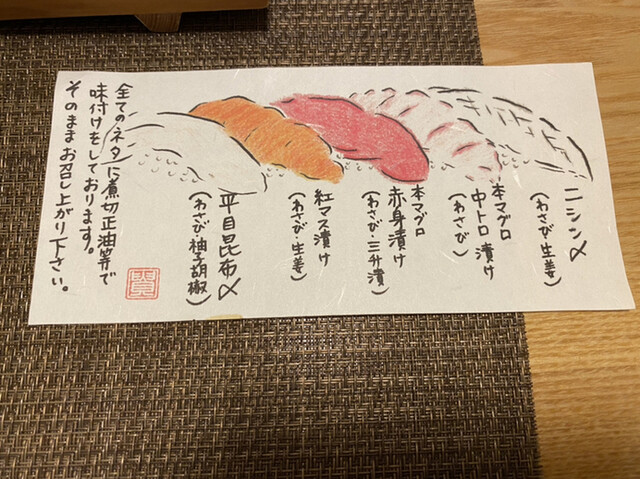 ニシン〆
(わさび・生姜)
本マグロ
中トロ漬け
(わさび)
本マグロ
赤身漬け
(わさび・三升漬)
紅マス漬け
(わさび・生姜)
平目昆布〆
(わさび・柚子胡椒)
全てのネタに煮切正油等で
味付けをしております。
そのままお召し上がり下さい。